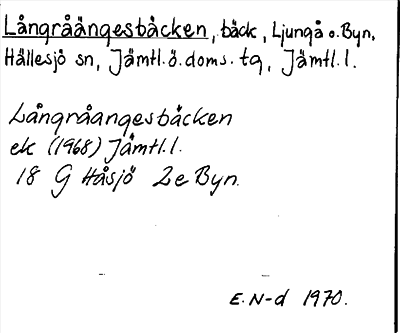 Långråängesbäcken, bäck, Ljungå o. Byn,
Hällesjö sn, Jämtl. ö. doms. tg, Jämtl. l.
Långråängesbäcken
ek (1968) Jämtl. l.
18 G Håsjö 2e Byn.
E. N-d 1970.